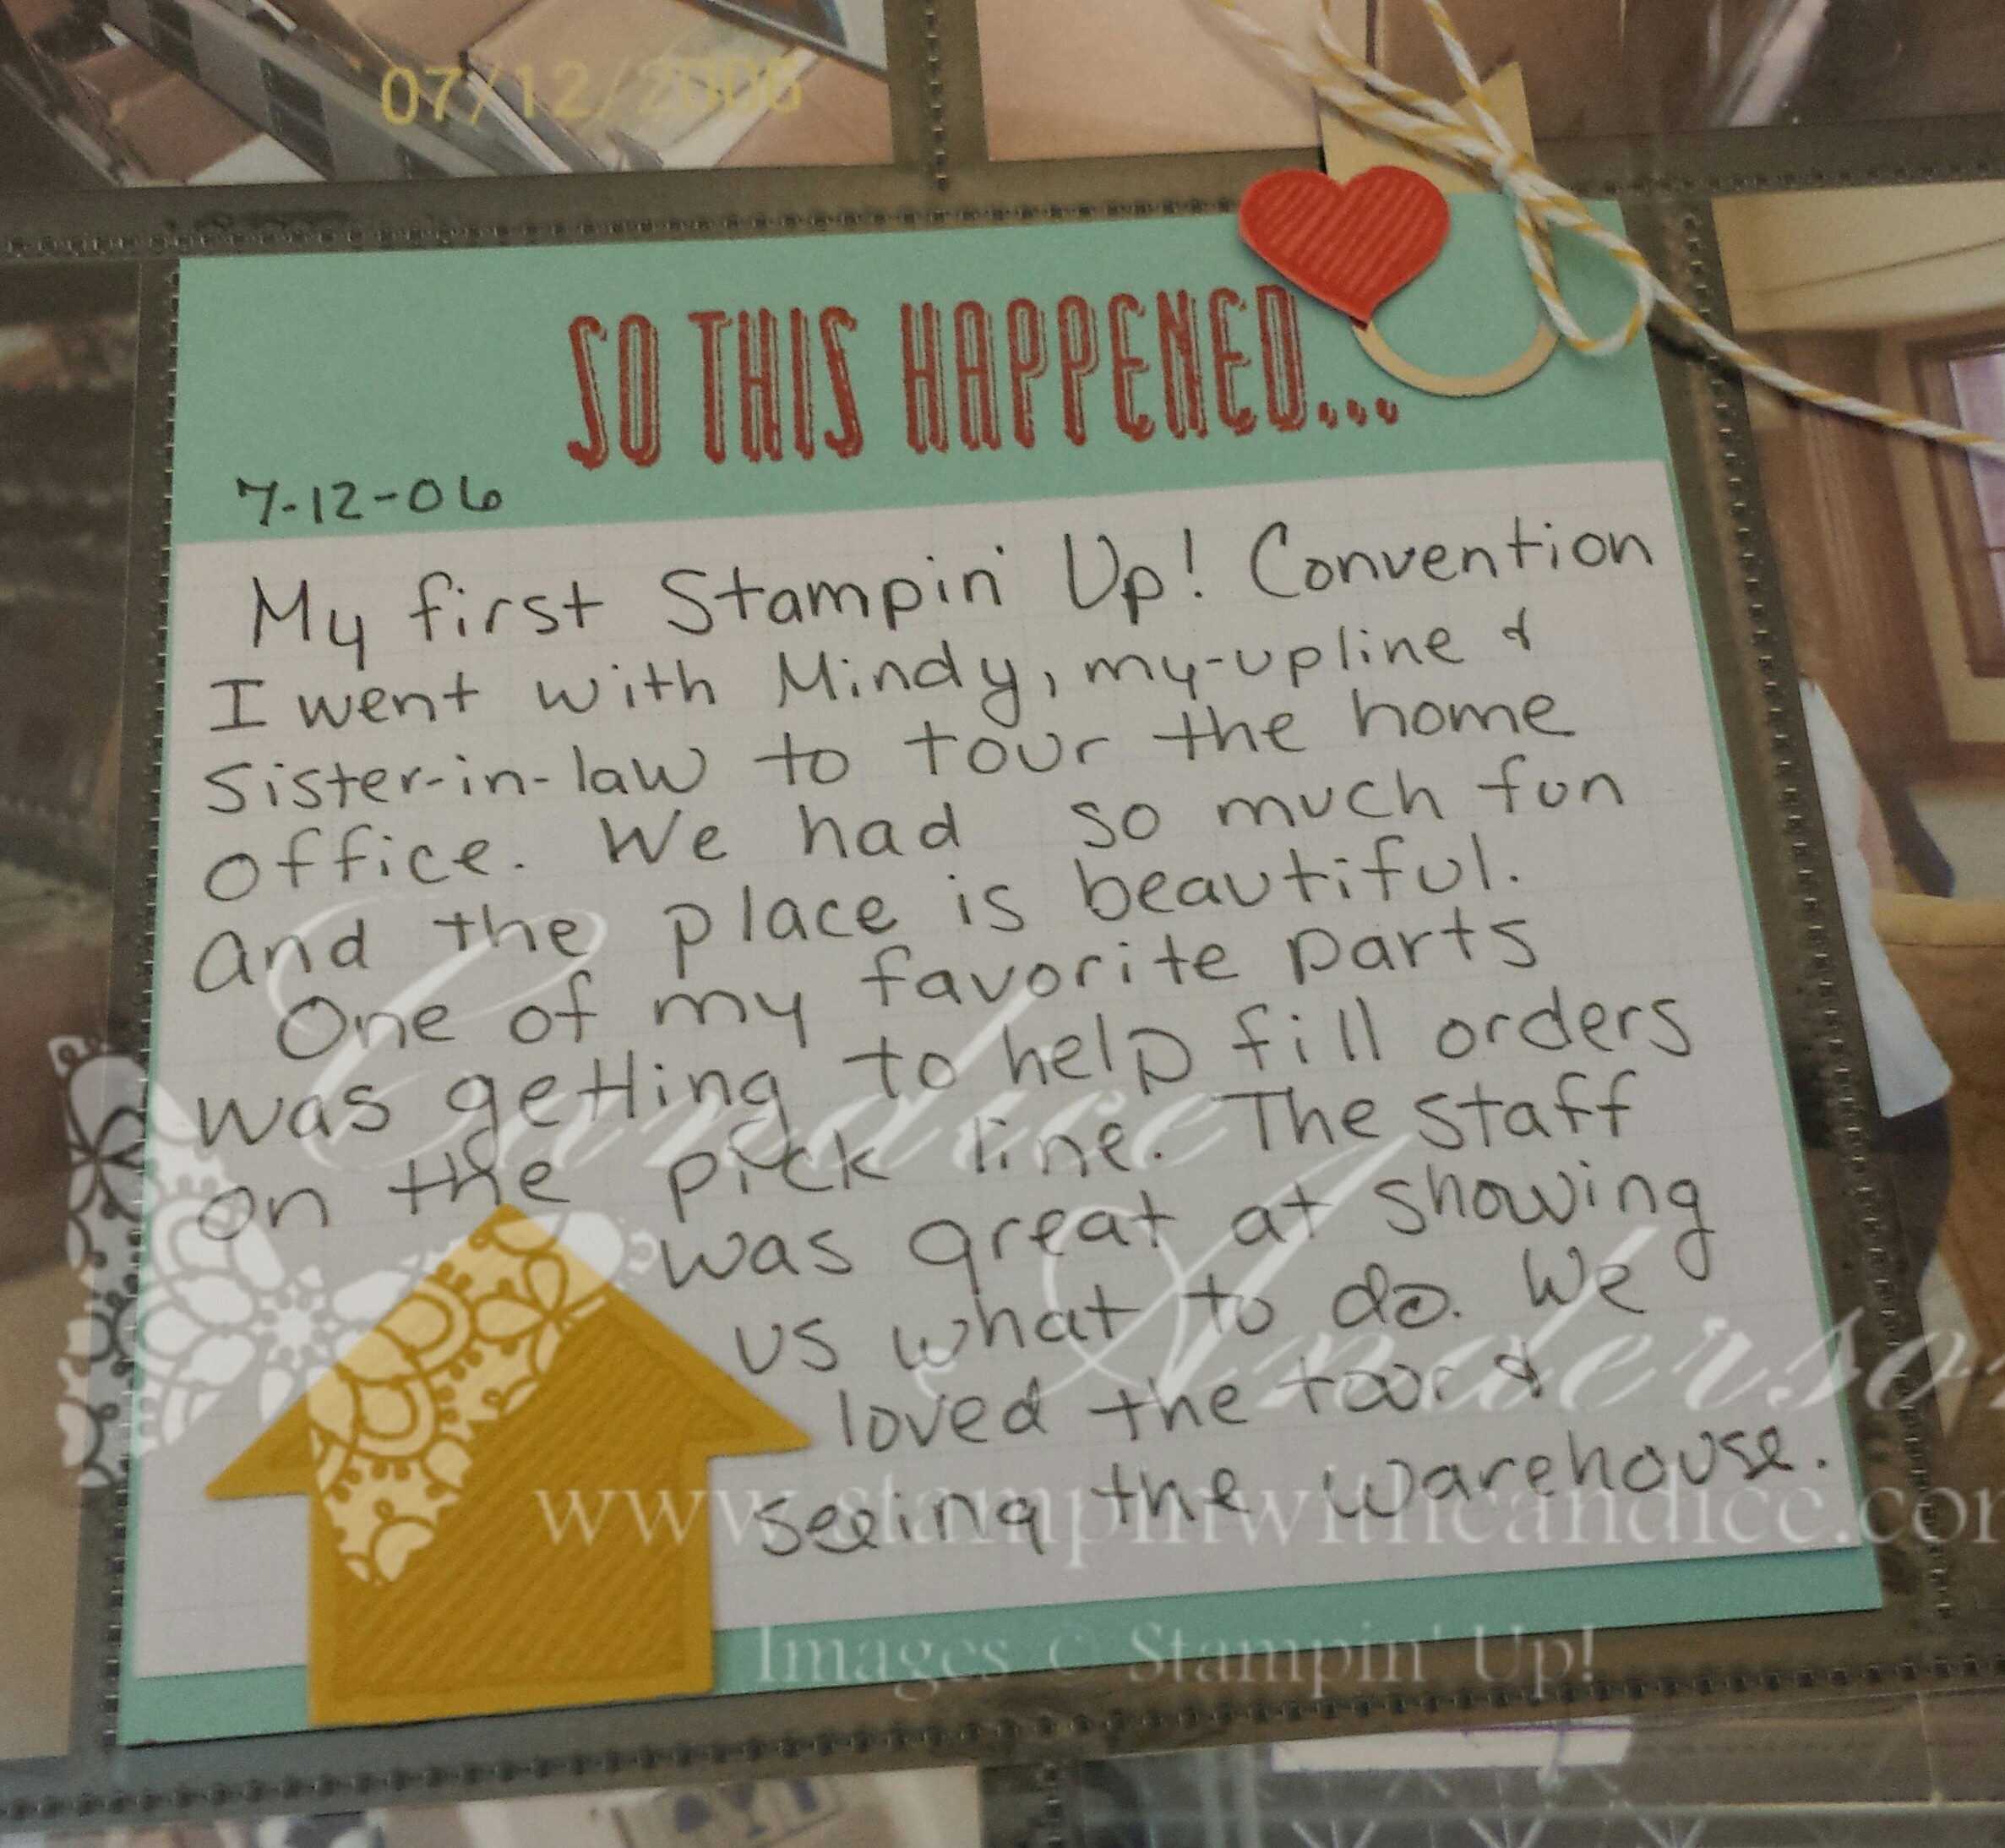 07/12/2006
SO THIS HAPPENED...
7-12-06
My first Stampin' Up! Convention
I went with Mindy, my-upline &
Sister-in-law to tour the home
office. We had so much fun
and the place is beautiful.
One of my favorite parts
was getting to help fill orders
on the pick line. The staff
was great at showing
us what to do. We
loved the tour &
seeing the warehouse.
Candice
Anderson
www.stampinwithcandice.com
Images © Stampin' Up!